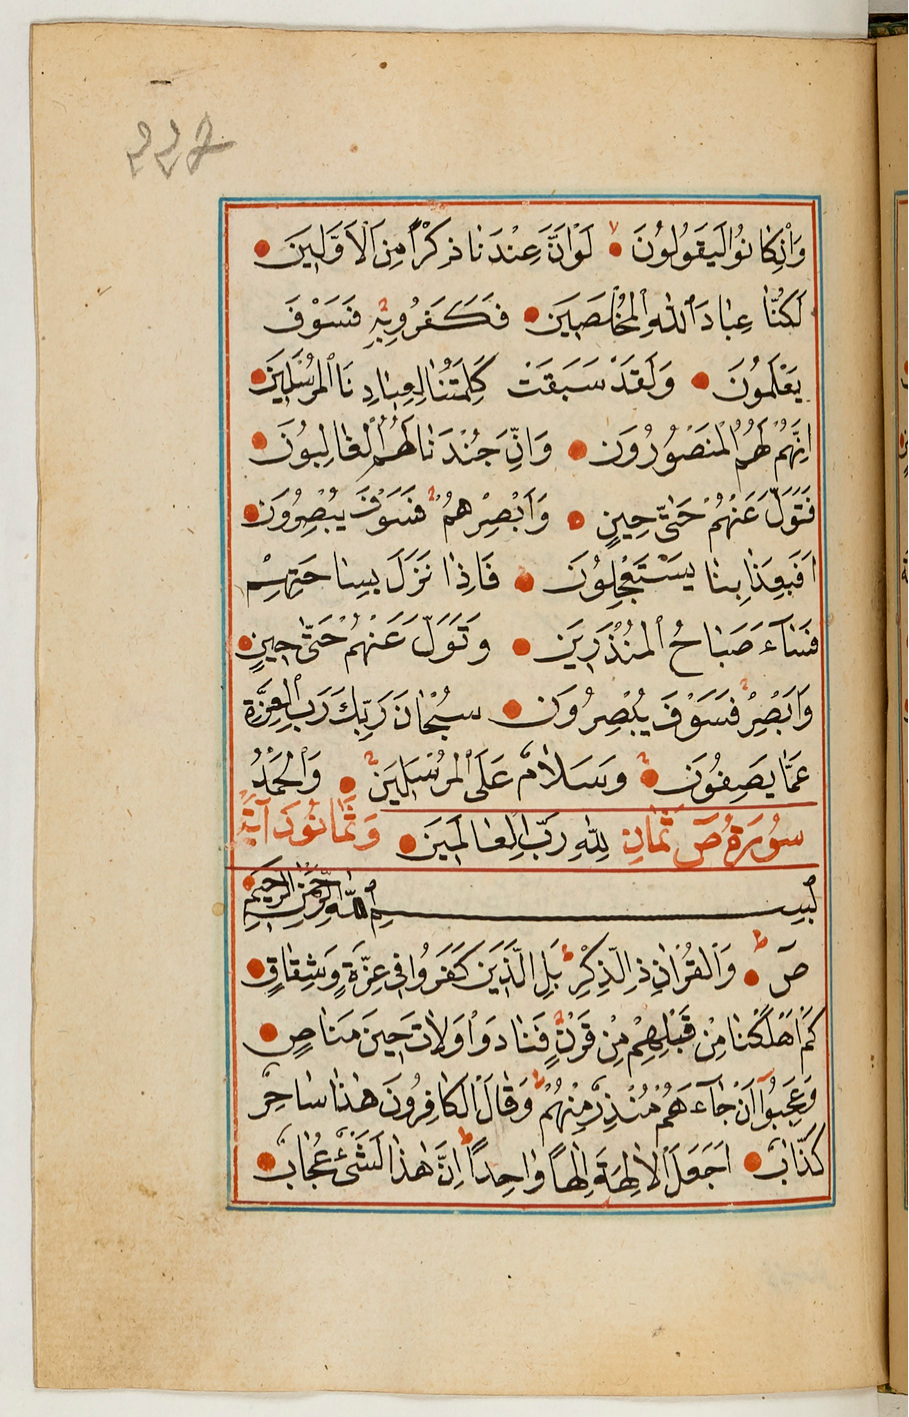 ٢٢٧
وَاِنْ كَانُوا لَيَقُولُونَ لَوْ اَنَّ عِنْدَنَا ذِكْرًا مِنَ الْاَوَّلِينَ
لَكُنَّا عِبَادَ اللّٰهِ الْمُخْلَصِينَ فَكَفَرُوا بِهِ فَسَوْفَ
يَعْلَمُونَ وَلَقَدْ سَبَقَتْ كَلِمَتُنَا لِعِبَادِنَا الْمُرْسَلِينَ
اِنَّهُمْ لَهُمُ الْمَنْصُورُونَ وَاِنَّ جُنْدَنَا لَهُمُ الْغَالِبُونَ
فَتَوَلَّ عَنْهُمْ حَتّٰى حِينٍ وَاَبْصِرْهُمْ فَسَوْفَ يُبْصِرُونَ
اَفَبِعَذَابِنَا يَسْتَعْجِلُونَ فَاِذَا نَزَلَ بِسَاحَتِهِمْ
فَسَاۤءَ صَبَاحُ الْمُنْذَرِينَ وَتَوَلَّ عَنْهُمْ حَتّٰى حِينٍ
وَاَبْصِرْ فَسَوْفَ يُبْصِرُونَ سُبْحَانَ رَبِّكَ رَبِّ الْعِزَّةِ
عَمَّا يَصِفُونَ وَسَلَامٌ عَلَى الْمُرْسَلِينَ وَالْحَمْدُ
سُورَةُ صۤ ثَمَانِ لِلّٰهِ رَبِّ الْعَالَمِينَ وَثَمَانُونَ آيَةً
بِسْمِ اللّٰهِ الرَّحْمٰنِ الرَّحِيمِ
صۤ وَالْقُرْاٰنِ ذِي الذِّكْرِ بَلِ الَّذِينَ كَفَرُوا فِي عِزَّةٍ وَشِقَاقٍ
كَمْ اَهْلَكْنَا مِنْ قَبْلِهِمْ مِنْ قَرْنٍ فَنَادَوْا وَلَاتَ حِينَ مَنَاصٍ
وَعَجِبُوا اَنْ جَاۤءَهُمْ مُنْذِرٌ مِنْهُمْ وَقَالَ الْكَافِرُونَ هٰذَا سَاحِرٌ
كَذَّابٌ اَجَعَلَ الْاٰلِهَةَ اِلٰهًا وَاحِدًا اِنَّ هٰذَا لَشَيْءٌ عُجَابٌ